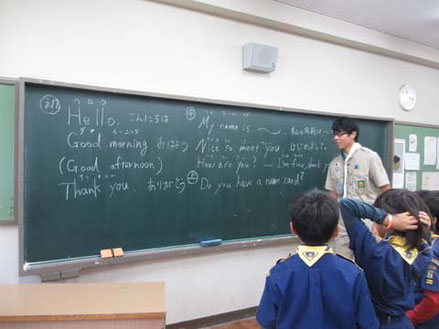 ハロウ
Hello. こんにちは
Good morning おはよう
(Good afternoon)
Thank you. ありがとう
My name is 〜.
Nice to meet you. はじめまして
How are you? — I'm fine, thank
Do you have a name card?